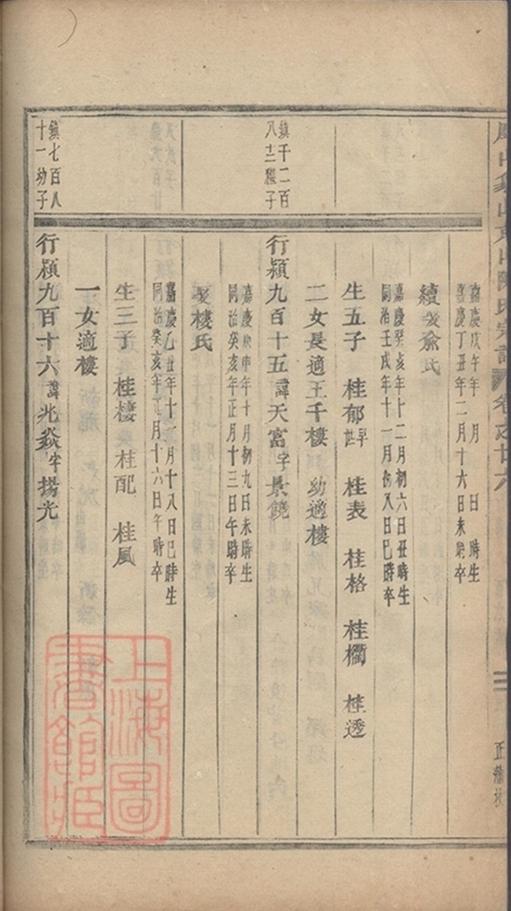 嘉慶戊午年 月 日 時生
嘉慶丁丑年二月十六日未時卒
續娶俞氏
嘉慶癸亥年十二月初六日丑時生
同治壬戌年十一月初八日巳時卒
生五子 桂郁早世 桂表 桂格 桂欄 桂透
二女長適王千樓 幼適樓
鎮千二百
八十三繼子
行潁九百十五諱天富字景饒
嘉慶庚申年十月初九日未時生
同治癸亥年正月十三日午時卒
娶樓氏
嘉慶乙丑年十一月十八日巳時生
同治癸亥年正月十六日午時卒
生三子 桂棲 桂配 桂風
一女適樓
鎮七百八
十一幼子
行潁九百十六諱光焱字揚光
上海圖書館藏